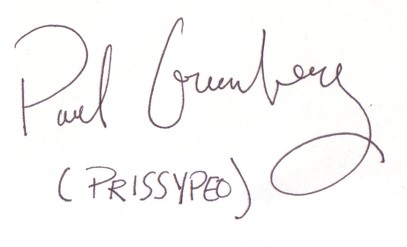 Paul Greenberg
(PRISSYPEO)